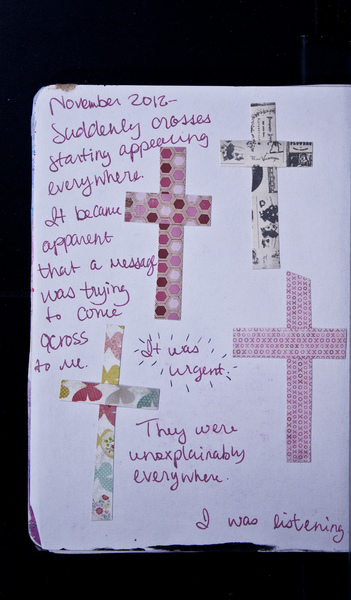 November 2012-
Suddenly crosses
starting appearing
everywhere.
It became
apparent
that a message
was trying
to come
across
to me.
It was
urgent.-
They were
unexplainably
everywhere.
I was listening